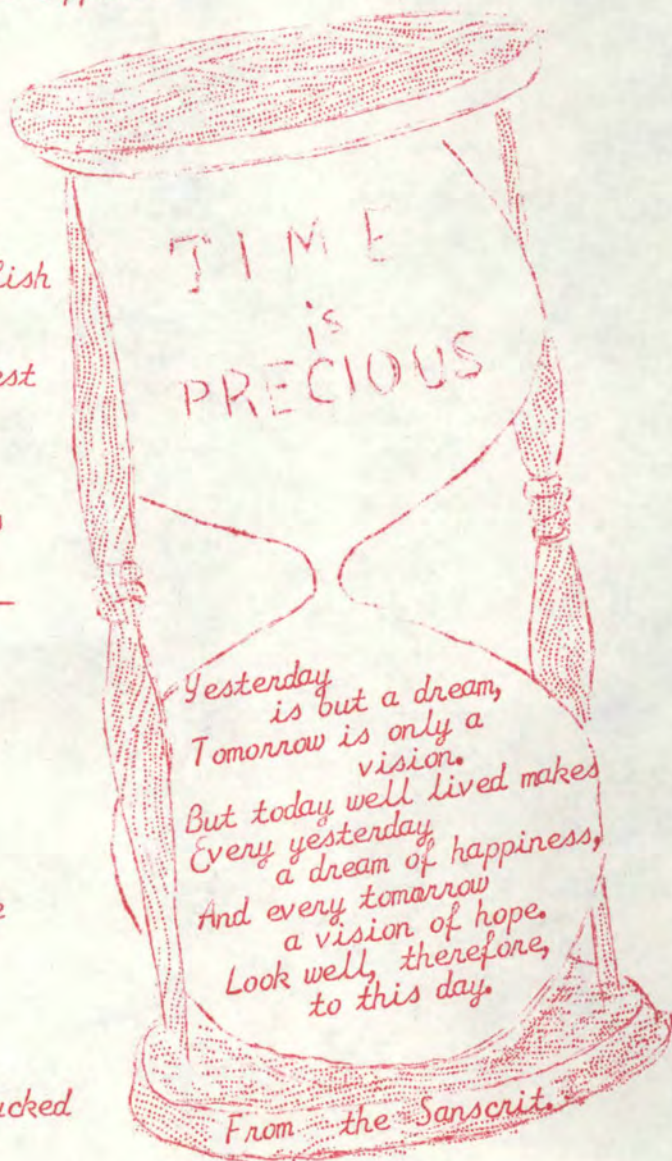 TIME
is
PRECIOUS
Yesterday
is but a dream,
Tomorrow is only a
vision.
But today well lived makes
Every yesterday
a dream of happiness,
And every tomorrow
a vision of hope.
Look well, therefore,
to this day.
From the Sanscrit.